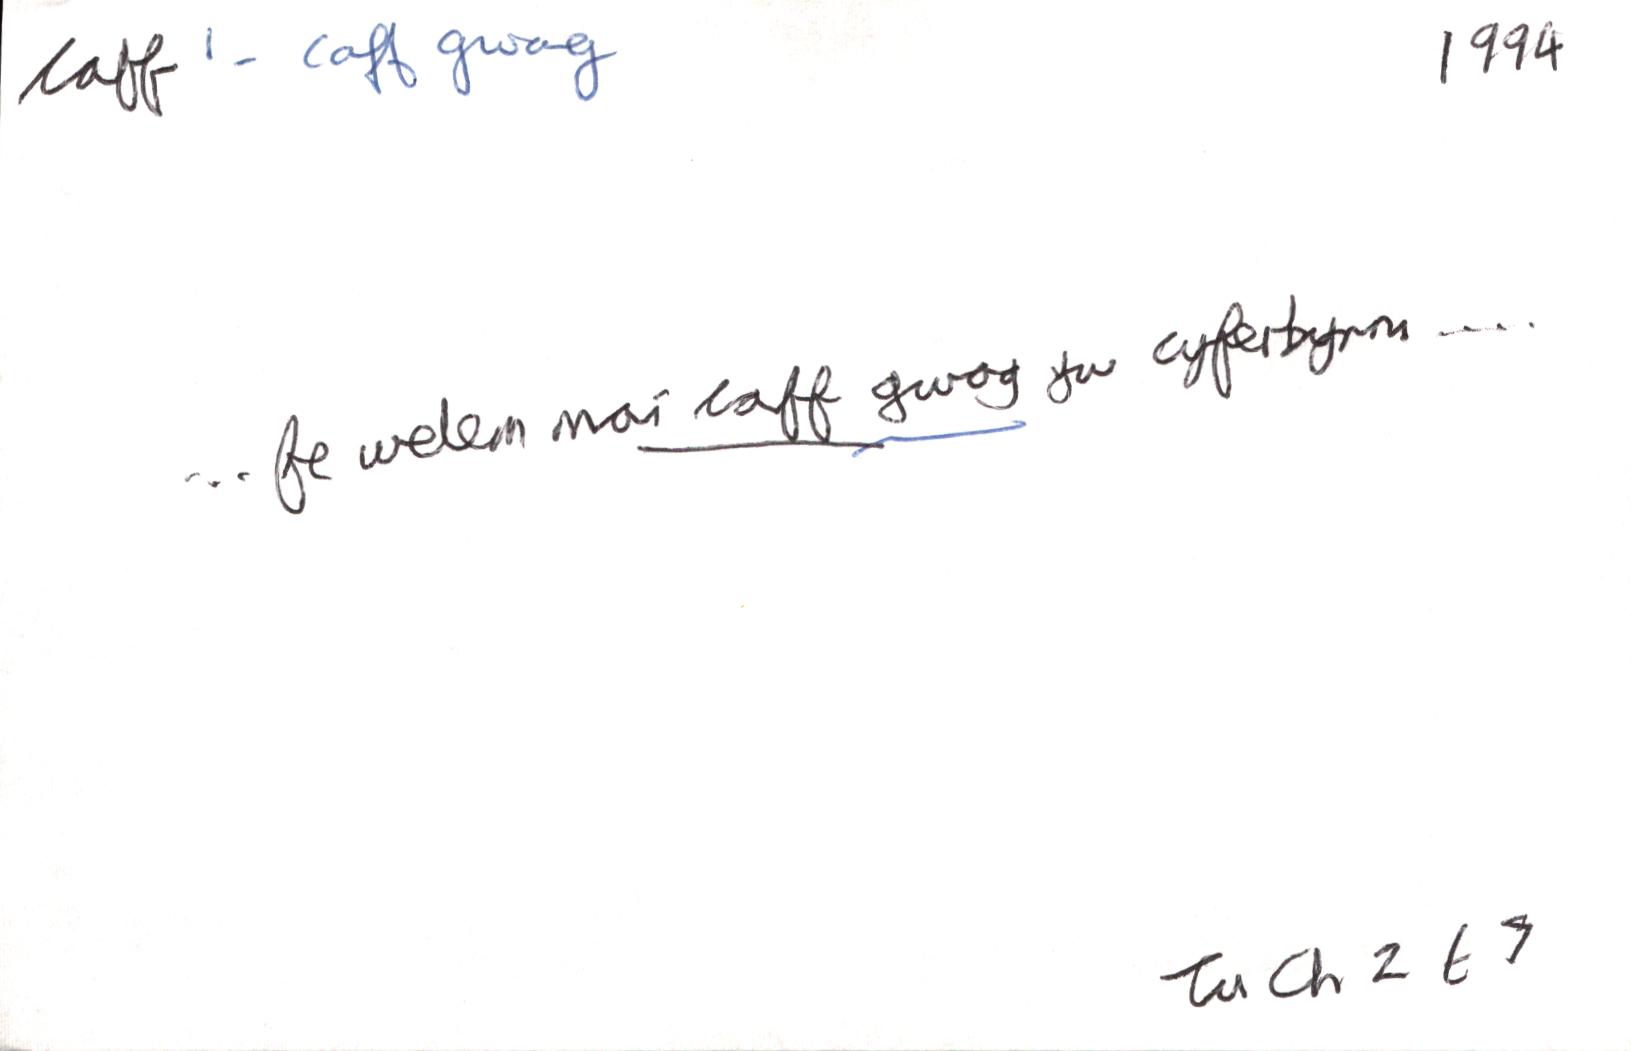 caff¹ - caff gwag 1994
... fe welem mai caff gwag yw cyferbynnu .....
Tu Ch 2 t